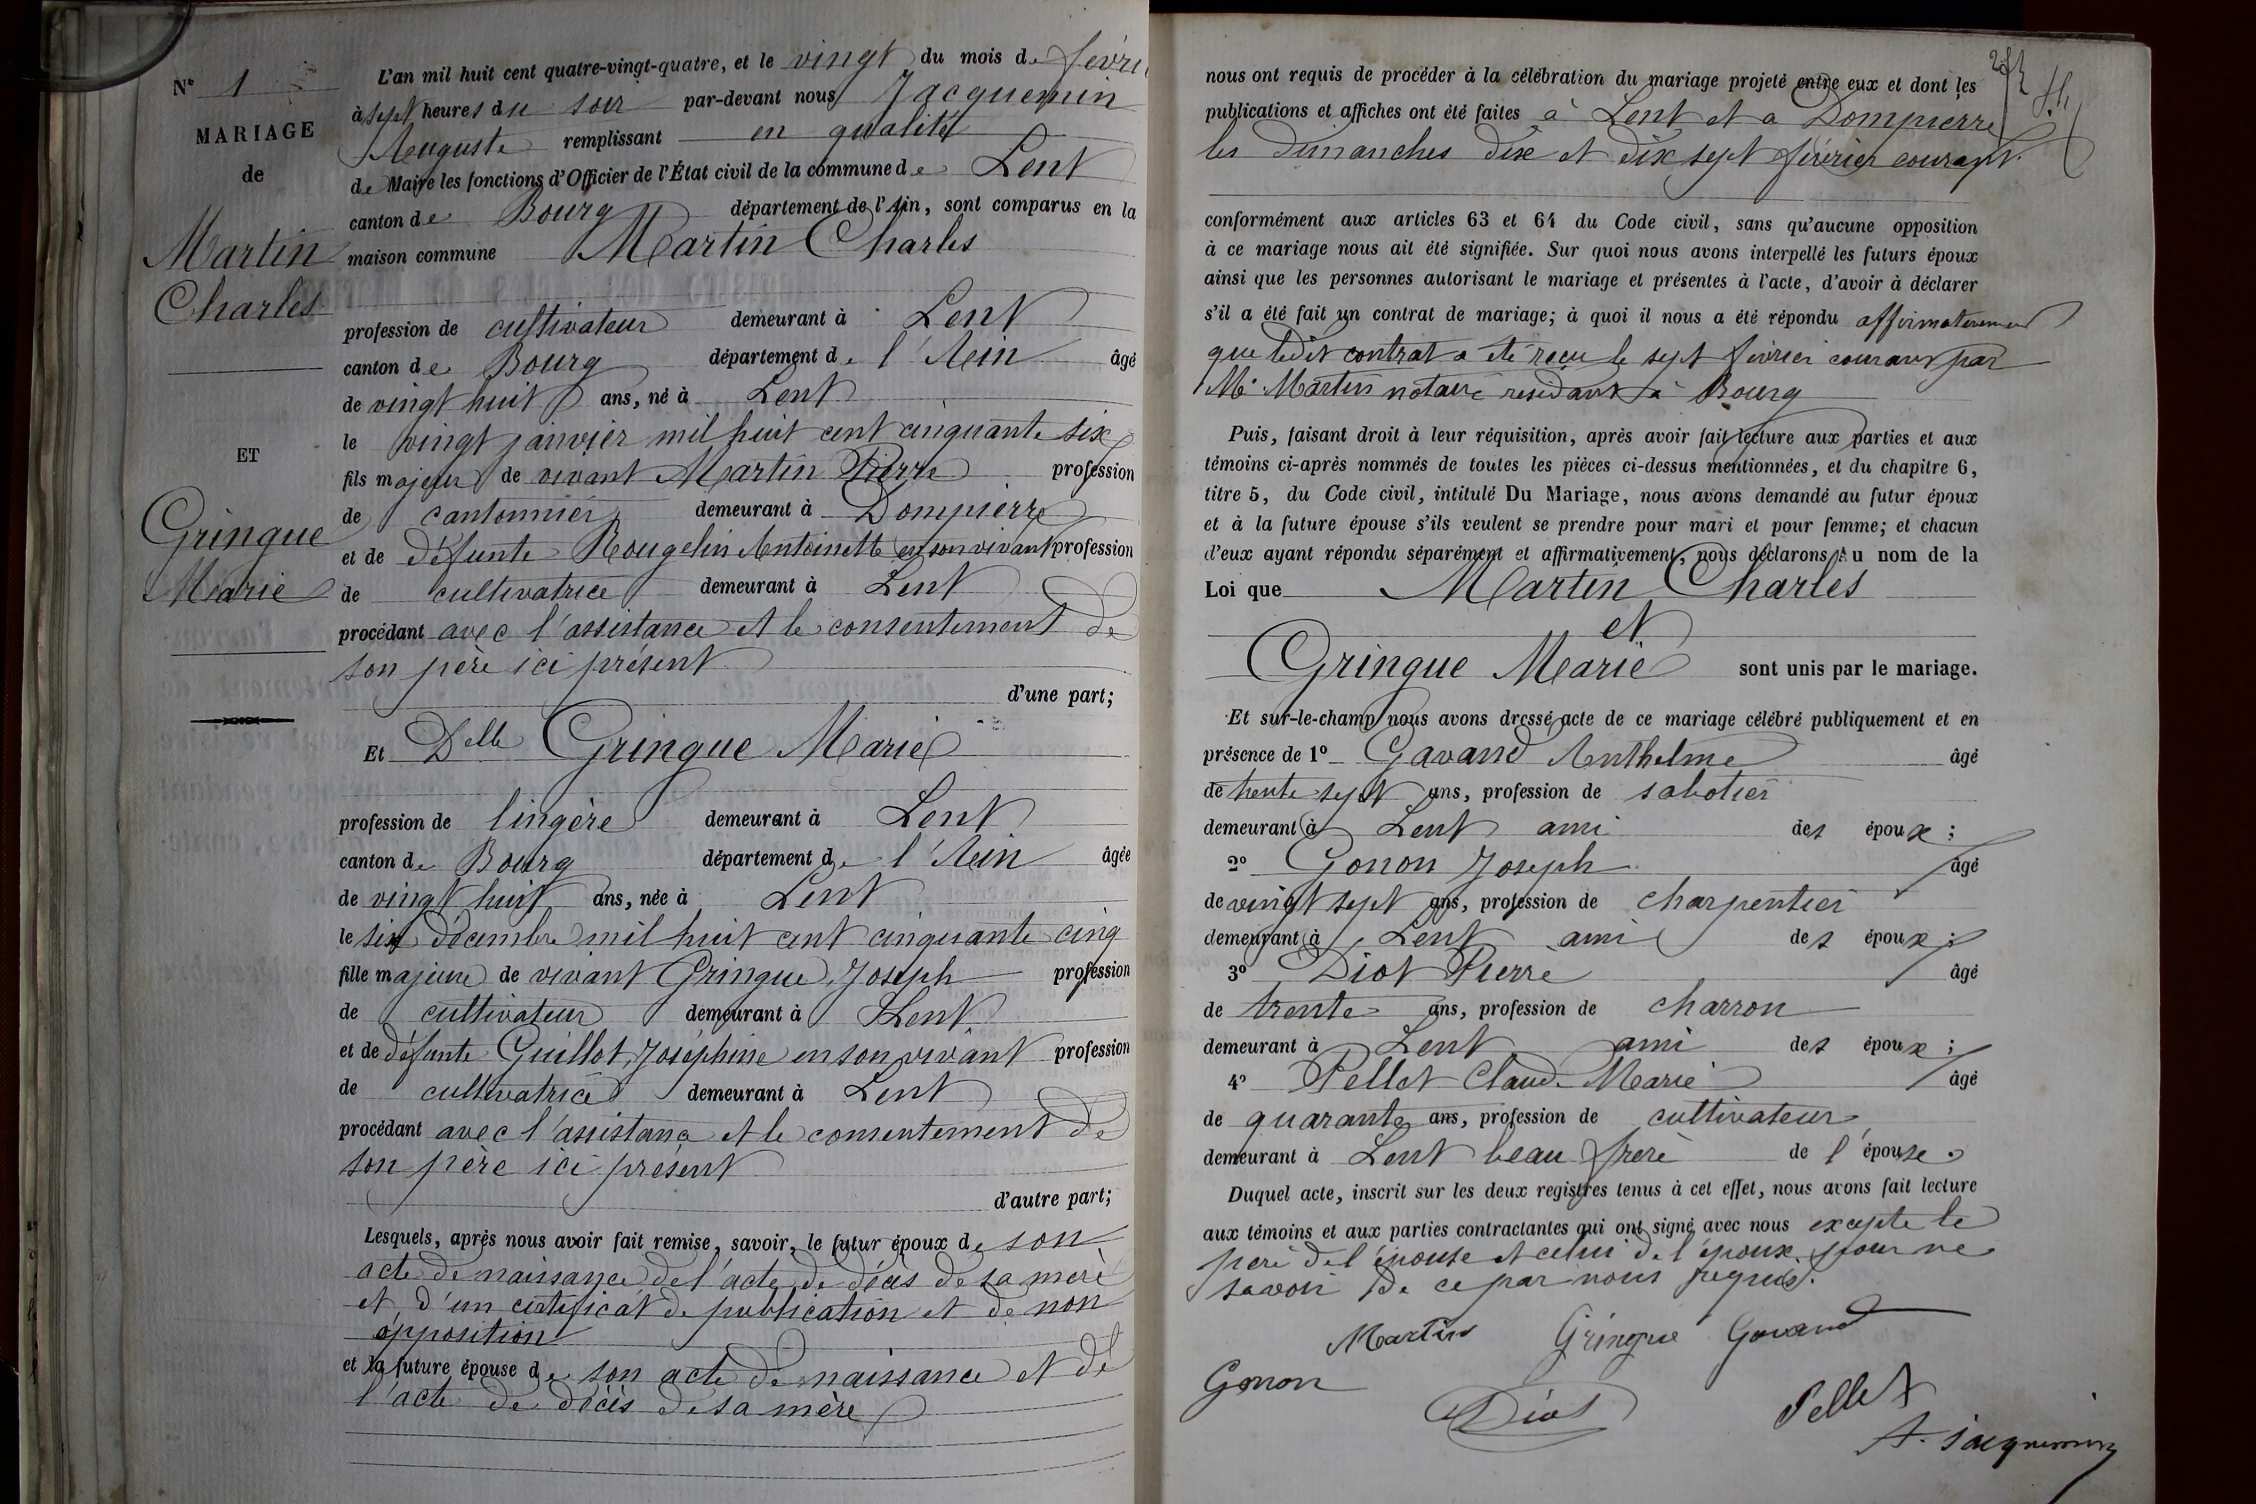 N° 1
MARIAGE
de
Martin
Charles
ET
Gringue
Marie
L'an mil huit cent quatre-vingt-quatre, et le vingt du mois de févri
à sept heures du soir par-devant nous Jacquemin
Auguste remplissant en qualité
de Maire les fonctions d'Officier de l'État civil de la commune de Lent
canton de Bourg département de l'Ain, sont comparus en la
maison commune Martin Charles
profession de cultivateur demeurant à Lent
canton de Bourg département de l'Ain âgé
de vingt huit ans, né à Lent
le vingt janvier mil huit cent cinquante six
fils majeur de vivant Martin Pierre profession
de cantonnier demeurant à Dompierre
et de défunte Rougelin Antoinette en son vivant profession
de cultivatrice demeurant à Lent
procédant avec l'assistance et le consentement de
son père ici présent
d'une part;
Et Delle Gringue Marie
profession de lingère demeurant à Lent
canton de Bourg département de l'Ain âgée
de vingt huit ans, née à Lent
le six décembre mil huit cent cinquante cinq
fille majeure de vivant Gringue Joseph profession
de cultivateur demeurant à Lent
et de défunte Guillot Joséphine en son vivant profession
de cultivatrice demeurant à Lent
procédant avec l'assistance et le consentement de
son père ici présent
d'autre part;
Lesquels, après nous avoir fait remise, savoir, le futur époux de son
acte de naissance de l'acte de décès de sa mère
et d'un certificat de publication et de non
opposition
et la future épouse de son acte de naissance et de
l'acte de décès de sa mère
nous ont requis de procéder à la célébration du mariage projeté entre eux et dont les
publications et affiches ont été faites à Lent et a Dompierre
les dimanches dix et dix sept février courant.
conformément aux articles 63 et 64 du Code civil, sans qu'aucune opposition
à ce mariage nous ait été signifiée. Sur quoi nous avons interpellé les futurs époux
ainsi que les personnes autorisant le mariage et présentes à l'acte, d'avoir à déclarer
s'il a été fait un contrat de mariage; à quoi il nous a été répondu affirmativement
que ledit contrat a été reçu le sept février courant par
Me Martin notaire résidant à Bourg
Puis, faisant droit à leur réquisition, après avoir fait lecture aux parties et aux
témoins ci-après nommés de toutes les pièces ci-dessus mentionnées, et du chapitre 6,
titre 5, du Code civil, intitulé Du Mariage, nous avons demandé au futur époux
et à la future épouse s'ils veulent se prendre pour mari et pour femme; et chacun
d'eux ayant répondu séparément et affirmativement, nous déclarons au nom de la
Loi que Martin Charles
et
Gringue Marie sont unis par le mariage.
Et sur-le-champ nous avons dressé acte de ce mariage célébré publiquement et en
présence de 1° Gavand Anthelme âgé
de trente sept ans, profession de sabotier
demeurant à Lent ami des époux;
2° Gonon Joseph âgé
de vingt sept ans, profession de charpentier
demeurant à Lent ami des époux;
3° Diot Pierre âgé
de trente ans, profession de charron
demeurant à Lent ami des époux;
4° Pellet Claude Marie âgé
de quarante ans, profession de cultivateur
demeurant à Lent beau frère de l'épouse.
Duquel acte, inscrit sur les deux registres tenus à cet effet, nous avons fait lecture
aux témoins et aux parties contractantes qui ont signé avec nous excepte le
père de l'épouse et celui de l'époux pour ne
savoir de ce par nous requis.
Martin Gringue Gavand
Gonon
Diot
Pellet
A. Jacquemin